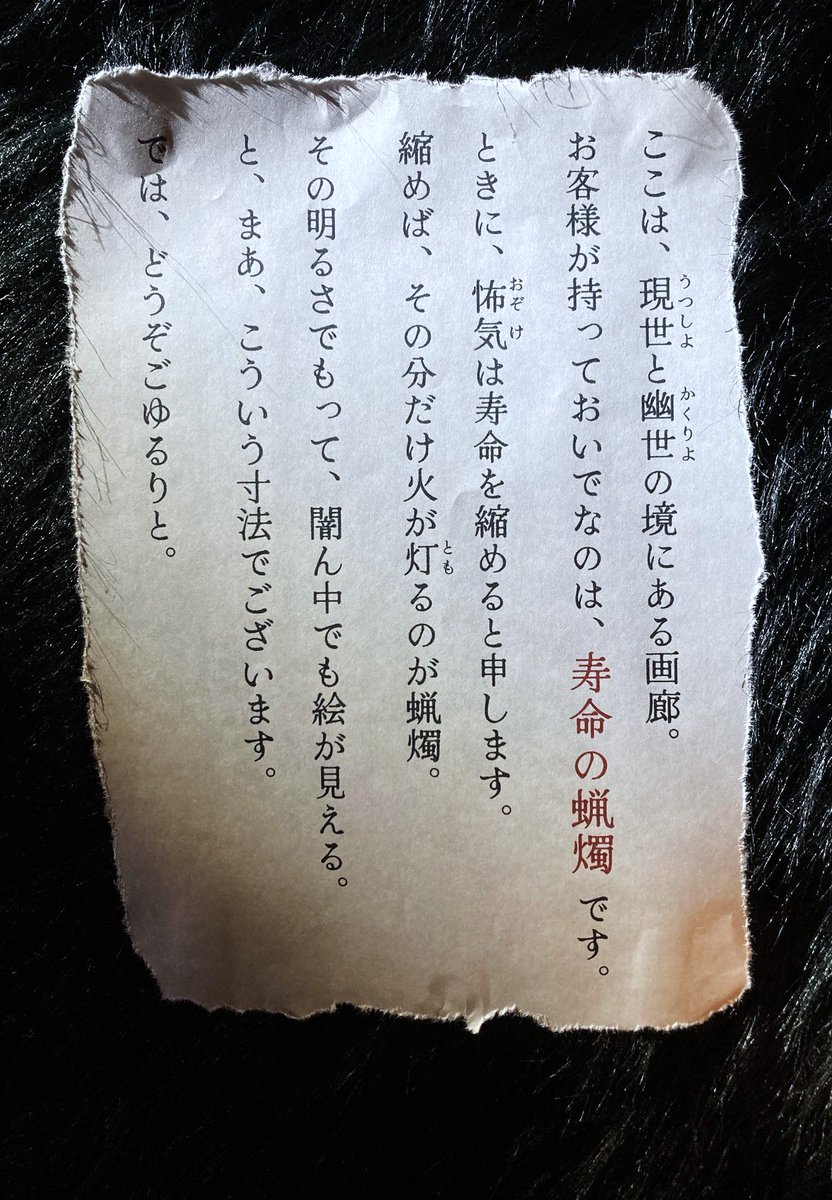 ここは、現世と幽世の境にある画廊。
お客様が持っておいでなのは、寿命の蝋燭です。
ときに、怖気は寿命を縮めると申します。
縮めば、その分だけ火が灯るのが蝋燭。
その明るさでもって、闇ん中でも絵が見える。
と、まあ、こういう寸法でございます。
では、どうぞごゆるりと。